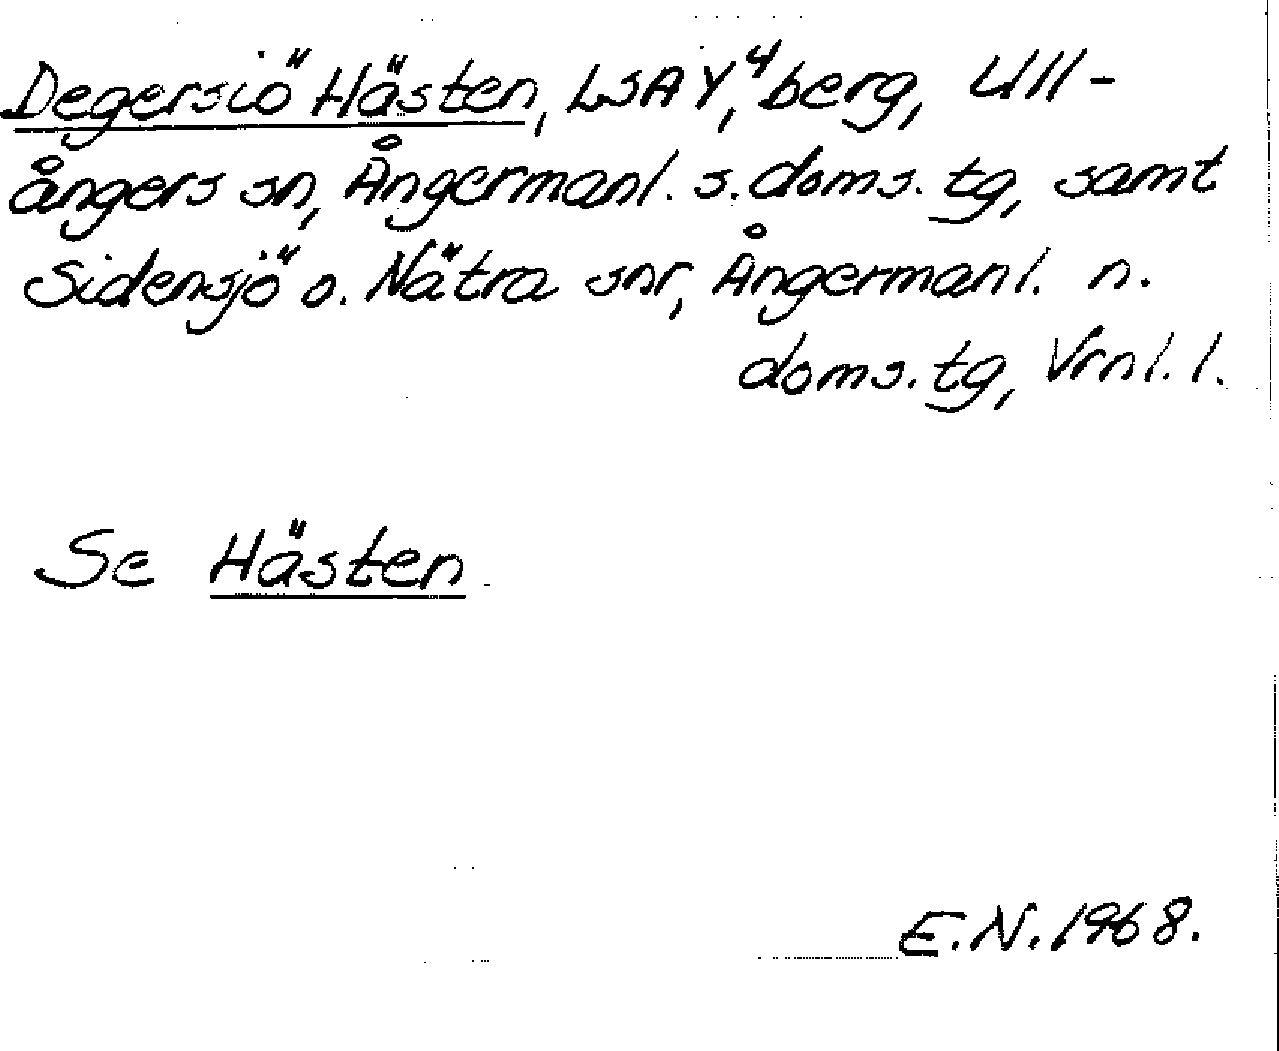 Degersiö Hästen, LSA Y, 4 berg, Ull-
ångers sn, Ångermanl. s. doms. tg, samt
Sidensjö o. Nätra snr, Ångermanl. n.
doms. tg, Vrnl. l.
Se Hästen
E.N. 1968.